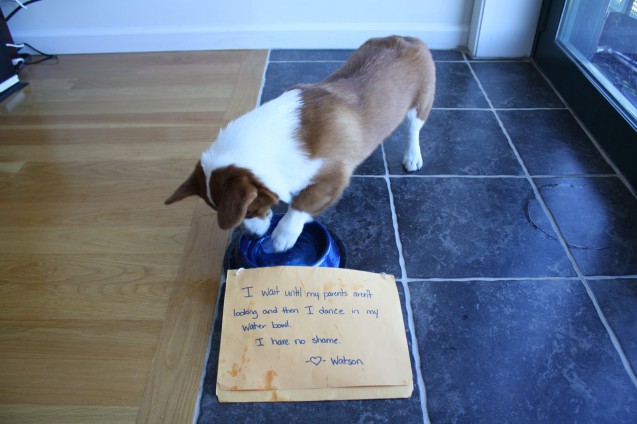 I wait until my parents aren't
looking and then I dance in my
water bowl.
I have no shame.
-♡- Watson